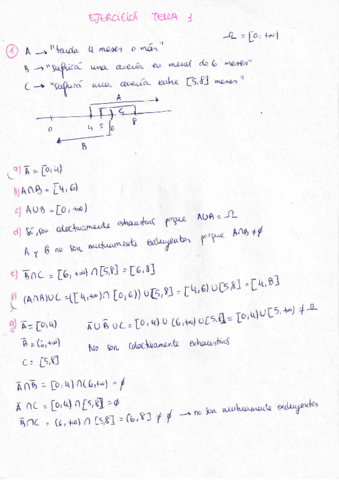 EJERCICIOS TEMA 3
Ω = [0, +∞)
1 A → "tarda 4 meses o más"
B → "sufrirá una avería en menos de 6 meses"
C → "sufrirá una avería entre [5,8] meses"
A
C
0 4 5 6 8
B
a) Ā = [0,4)
b) A∩B = [4,6)
c) A∪B = [0,+∞)
d) Sí, son colectivamente exhaustivos porque A∪B = Ω
A y B no son mutuamente excluyentes porque A∩B ≠ ∅
e) B̄∩C = [6,+∞) ∩ [5,8] = [6,8]
f) (A∩B)∪C = ([4,+∞) ∩ [0,6)) ∪ [5,8] = [4,6) ∪ [5,8] = [4,8]
g) Ā = [0,4) Ā∪B̄∪C = [0,4) ∪ (6,+∞) ∪ [5,8] = [0,4) ∪ [5,+∞) ≠ Ω
B̄ = (6,+∞) No son colectivamente exhaustivos
C = [5,8]
Ā∩B̄ = [0,4) ∩ (6,+∞) = ∅
Ā∩C = [0,4) ∩ [5,8] = ∅
B̄∩C = (6,+∞) ∩ [5,8] = (6,8] ≠ ∅ → no son mutuamente excluyentes